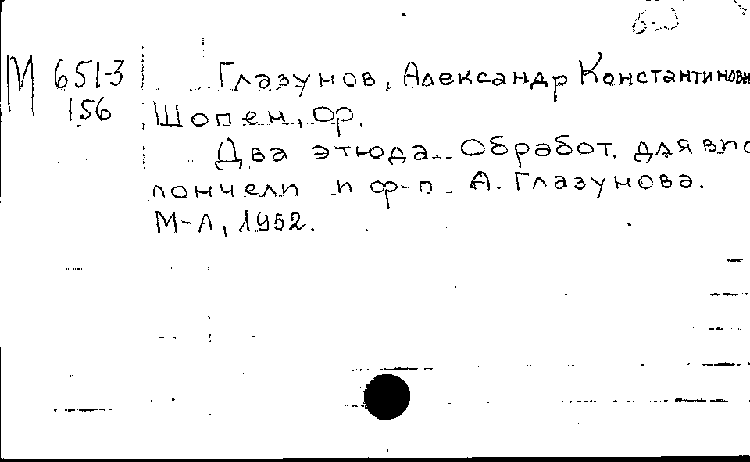 М 651-3 Глазунов, Александр Константинович
156 Шопен, Фр.
Два этюда. Обработ. для вио
лончели и ф-п. А. Глазунова.
М-Л, 1952.